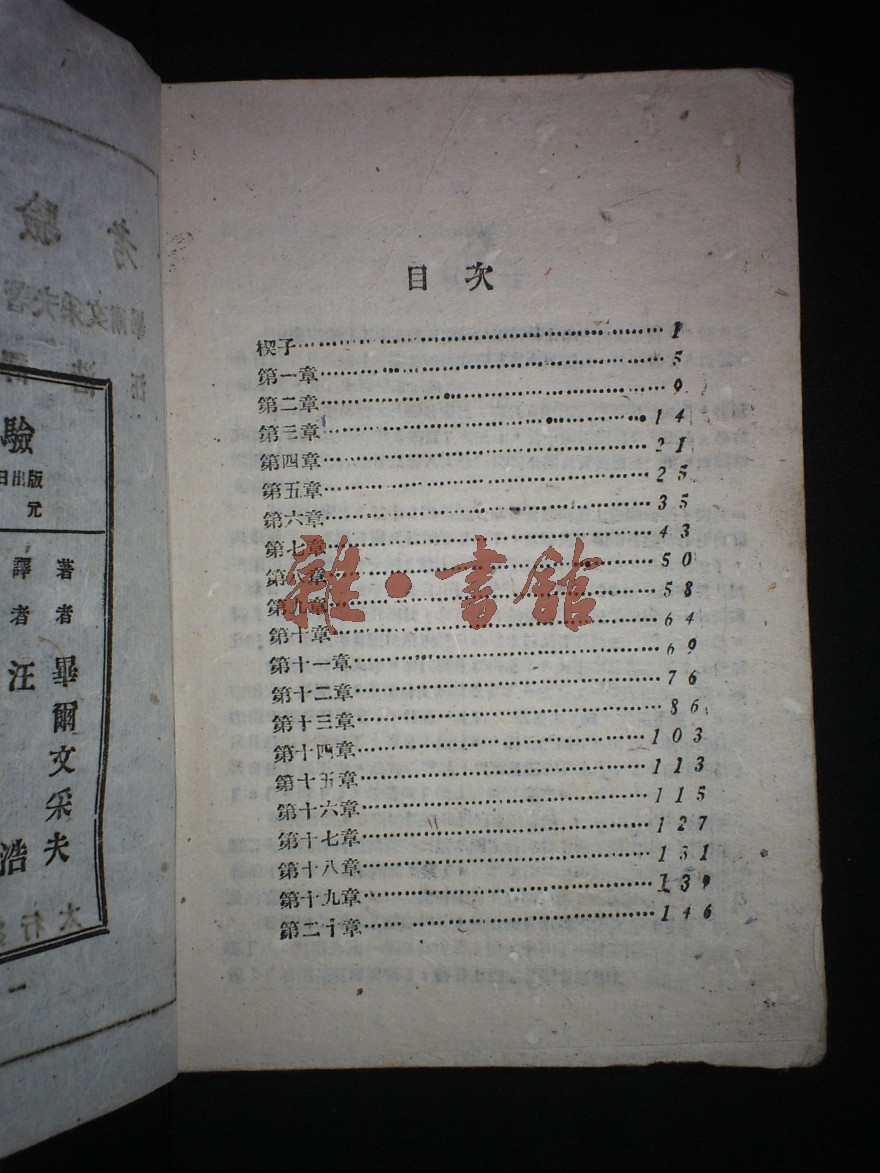 目次
楔子……1
第一章……5
第二章……9
第三章……14
第四章……21
第五章……25
第六章……35
第七章……43
第八章……50
第九章……58
第十章……64
第十一章……69
第十二章……76
第十三章……86
第十四章……103
第十五章……113
第十六章……115
第十七章……127
第十八章……131
第十九章……139
第二十章……146
雜·書館
驗
日出版
元
著者 畢爾文采夫
譯者 汪 浩
考驗